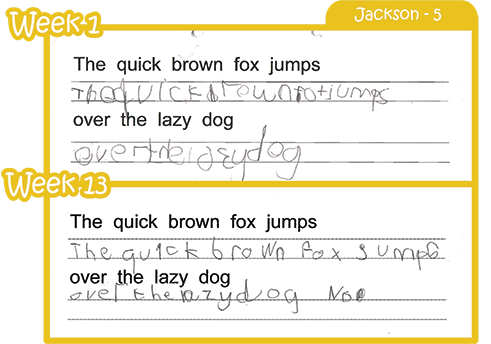 Week 1
Jackson - 5
The quick brown fox jumps
The quick brown fox jumps
over the lazy dog
over the lazy dog
Week 13
The quick brown fox jumps
The quick brown fox jumps
over the lazy dog
over the lazy dog